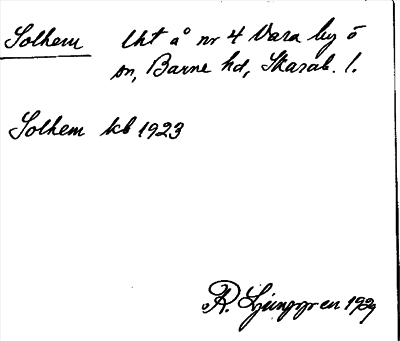 Solhem Uht å nr 4 Vara by ö
sn, Barne hd, Skarab. l.
Solhem kb 1923
R. Ljunggren 1929